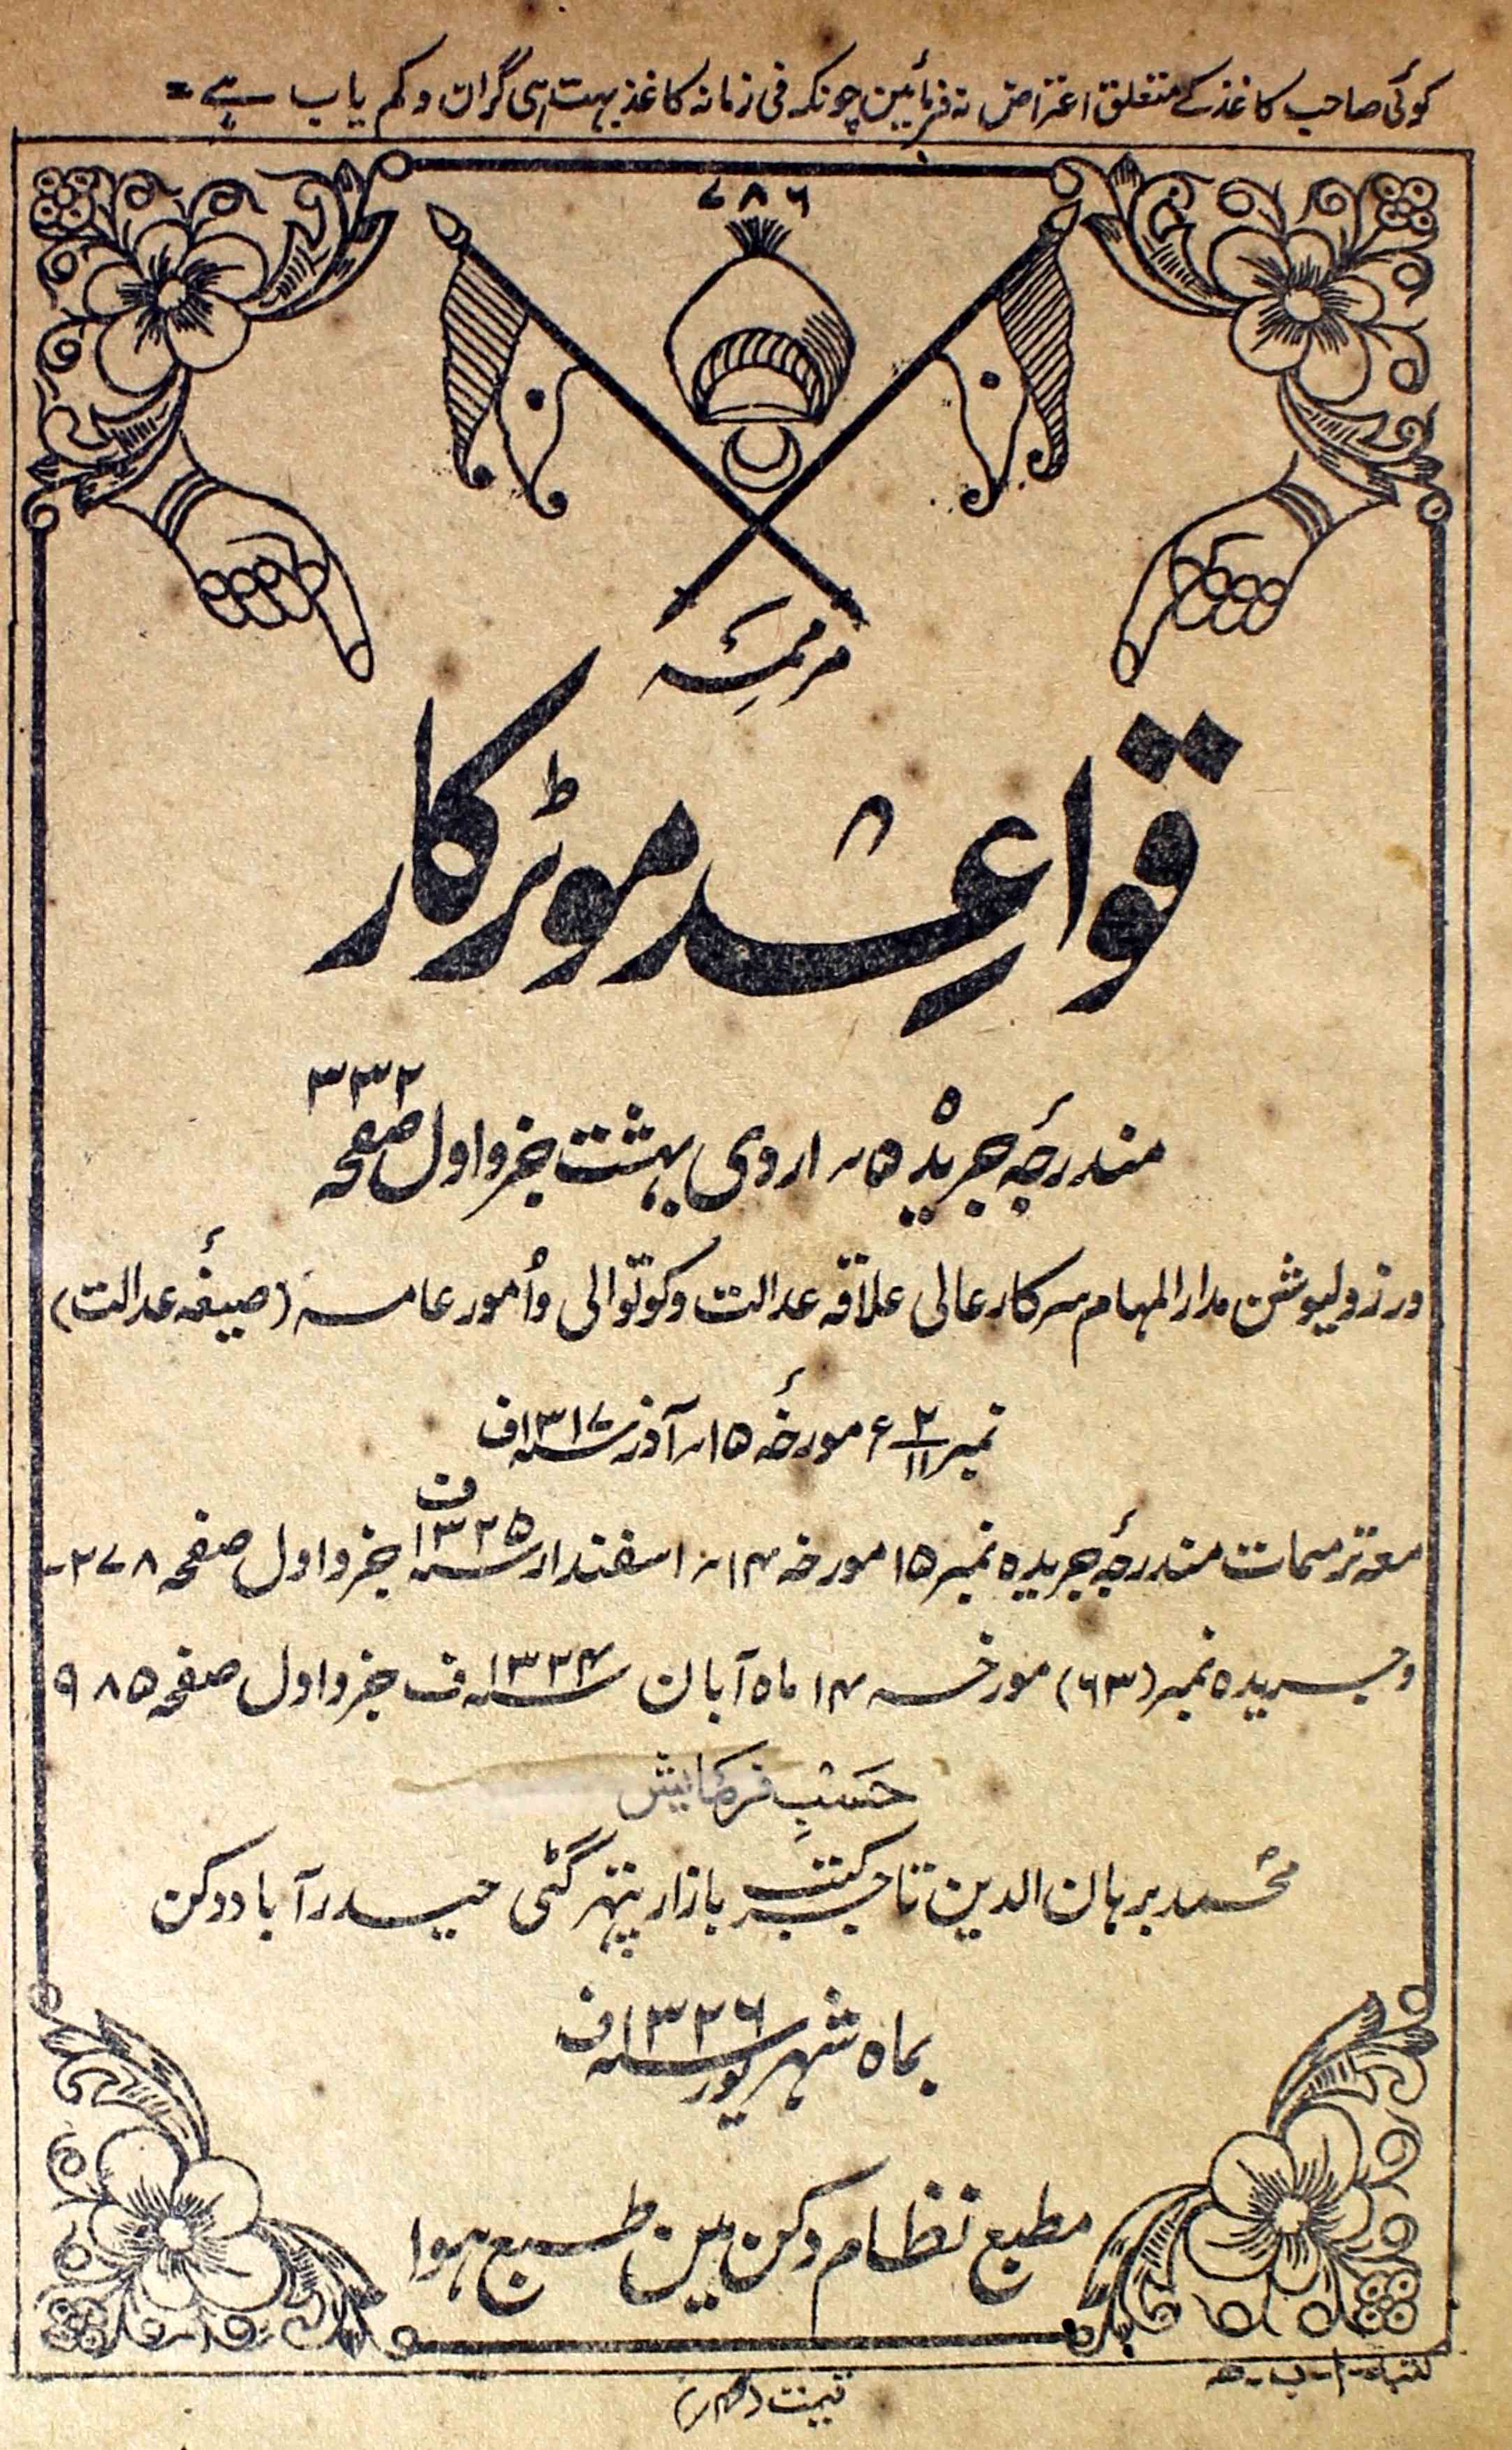 کوئی صاحب کاغذ کے متعلق اعتراض نہ فرمائین چونکہ فی زمانہ کاغذ بہت ہی گران و کم یاب ہے =
۷۸۶
مرممہٗ
قواعد موٹر کار
مندرجۂ جریدہ ۵؍ اردی بہشت جزو اول صفحہ ۳۳۲
ورزولیوشن مدار المہام سرکار عالی علاقہ عدالت و کوتوالی و اُمور عامہ (صیغۂ عدالت)
نمبر ۲/۱۱ ۶ مورخۂ ۱۵؍ آذر سنہ ۱۳۱۷ف
معہ ترمیمات مندرجۂ جریدہ نمبر ۱۵ مورخہ ۱۴؍ اسفندار سنہ ۱۳۲۵ف جزو اول صفحہ ۲۷۸-
و جریدہ نمبر (۶۳) مورخہ ۱۴ ماہ آبان سنہ ۱۳۲۴ف جزو اول صفحہ ۹۸۵
حَسْبِ فرمایش
محمد برہان الدین تاجر کتب بازار پتھر گٹی حیدرآباد دکن
بماہ شہریور سنہ ۱۳۲۶ف
مطبع نظام دکن مین طبع ہوا
قیمت